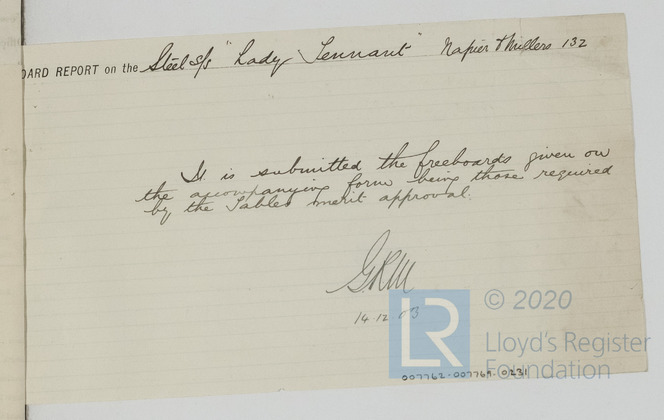 OARD REPORT on the Steel S/S "Lady Tennant" Napier & Millers 132
It is submitted the freeboards given on
the accompanying form being those required
by the Tables merit approval.
G.R.M
14.12.03
LR © 2020
Lloyd's Register
Foundation
007762-007769-0231